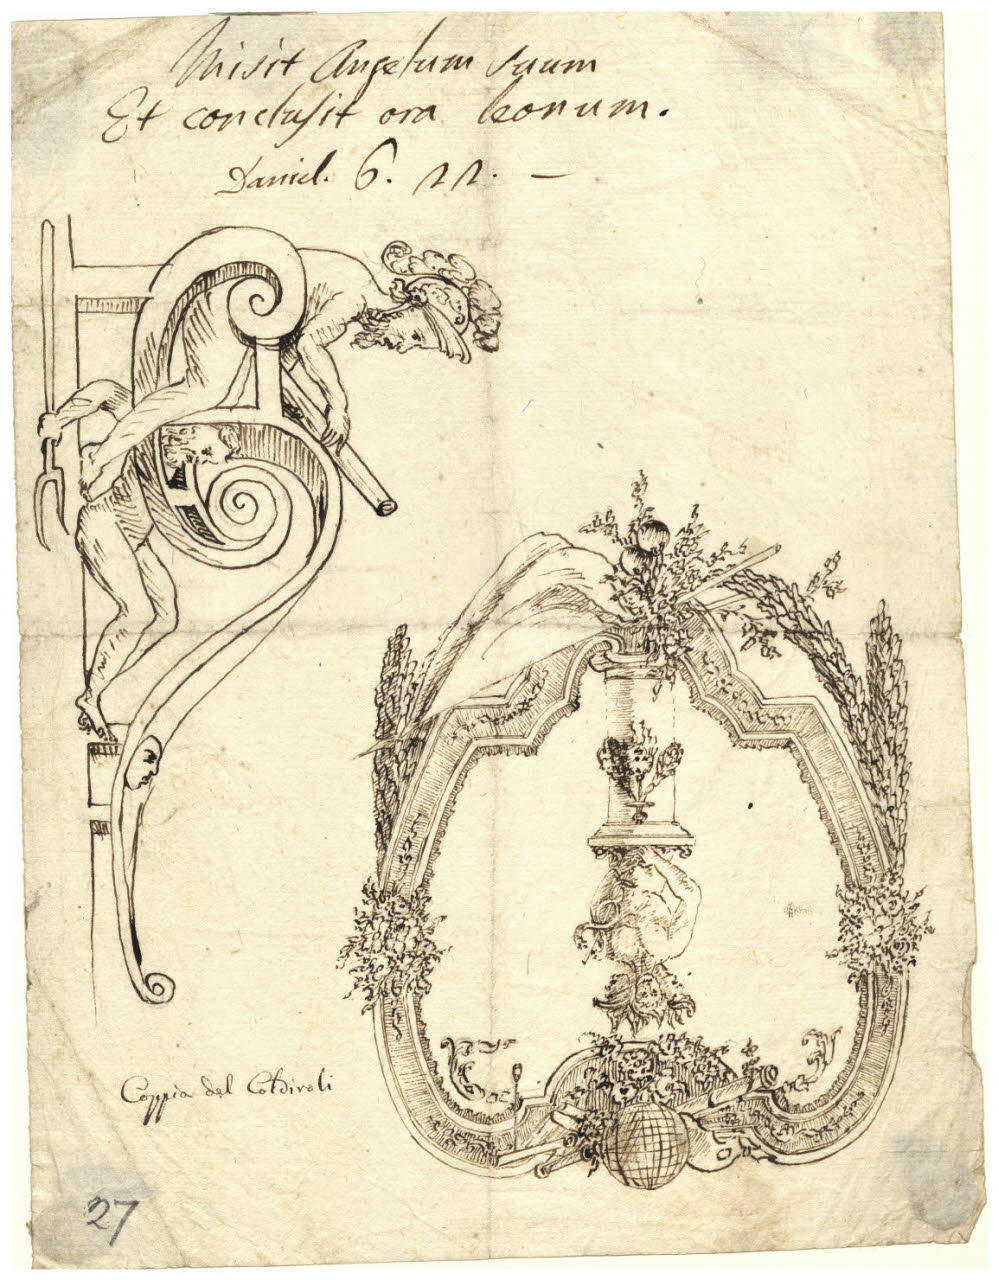 Misit Angelum suum
Et conclusit ora leonum.
Daniel. 6. 22. —
Coppia del
27